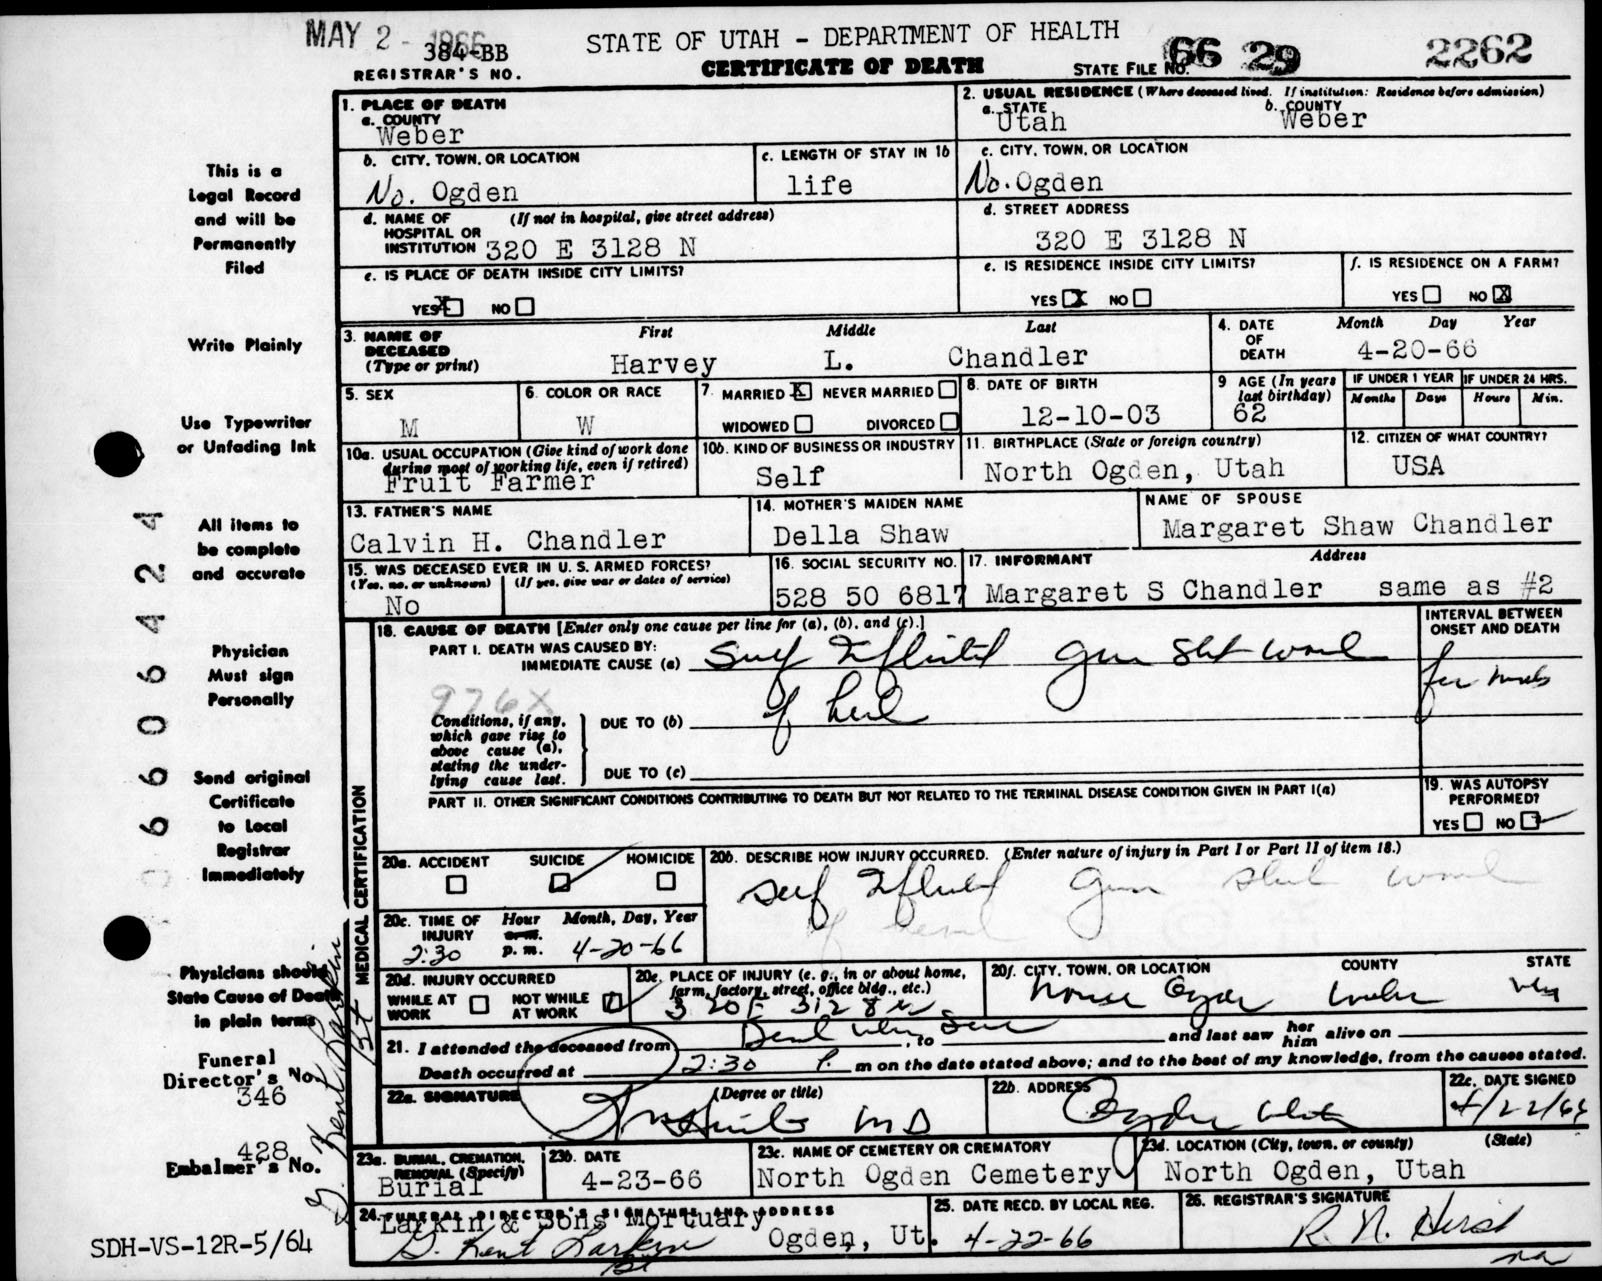 MAY 2 - 1966
384-BB
REGISTRAR'S NO.
STATE OF UTAH - DEPARTMENT OF HEALTH
CERTIFICATE OF DEATH
STATE FILE No. 66 29 2262
This is a
Legal Record
and will be
Permanently
Filed
Write Plainly
Use Typewriter
or Unfading Ink
All items to
be complete
and accurate
Physician
Must sign
Personally
Send original
Certificate
to Local
Registrar
Immediately
Physicians should
State Cause of Death
in plain terms
Funeral
Director's No.
346
428
Embalmer's No.
SDH-VS-12R-5/64
660642 4
G. Kent Larkin
MEDICAL CERTIFICATION
1. PLACE OF DEATH
a. COUNTY
Weber
2. USUAL RESIDENCE (Where deceased lived. If institution: Residence before admission)
a. STATE
Utah
b. COUNTY
Weber
b. CITY, TOWN, OR LOCATION
No. Ogden
c. LENGTH OF STAY IN 1b
life
c. CITY, TOWN, OR LOCATION
No. Ogden
d. NAME OF (If not in hospital, give street address)
HOSPITAL OR
INSTITUTION 320 E 3128 N
d. STREET ADDRESS
320 E 3128 N
e. IS PLACE OF DEATH INSIDE CITY LIMITS?
YES X NO
e. IS RESIDENCE INSIDE CITY LIMITS?
YES X NO
f. IS RESIDENCE ON A FARM?
YES NO X
3. NAME OF
DECEASED
(Type or print)
First Middle Last
Harvey L. Chandler
4. DATE
OF
DEATH
Month Day Year
4-20-66
5. SEX
M
6. COLOR OR RACE
W
7. MARRIED X NEVER MARRIED
WIDOWED DIVORCED
8. DATE OF BIRTH
12-10-03
9 AGE (In years
last birthday)
62
IF UNDER 1 YEAR
Months Days
IF UNDER 24 HRS.
Hours Min.
10a. USUAL OCCUPATION (Give kind of work done
during most of working life, even if retired)
Fruit Farmer
10b. KIND OF BUSINESS OR INDUSTRY
Self
11. BIRTHPLACE (State or foreign country)
North Ogden, Utah
12. CITIZEN OF WHAT COUNTRY?
USA
13. FATHER'S NAME
Calvin H. Chandler
14. MOTHER'S MAIDEN NAME
Della Shaw
NAME OF SPOUSE
Margaret Shaw Chandler
15. WAS DECEASED EVER IN U. S. ARMED FORCES?
(Yes, no, or unknown) (If yes, give war or dates of service)
No
16. SOCIAL SECURITY NO.
528 50 6817
17. INFORMANT Address
Margaret S Chandler same as #2
18. CAUSE OF DEATH [Enter only one cause per line for (a), (b), and (c).]
PART I. DEATH WAS CAUSED BY:
IMMEDIATE CAUSE (a) Self Inflicted gun shot wound
of head
976X
INTERVAL BETWEEN
ONSET AND DEATH
Conditions, if any,
which gave rise to
above cause (a),
stating the under-
lying cause last.
DUE TO (b)
DUE TO (c)
PART II. OTHER SIGNIFICANT CONDITIONS CONTRIBUTING TO DEATH BUT NOT RELATED TO THE TERMINAL DISEASE CONDITION GIVEN IN PART I(a)
19. WAS AUTOPSY
PERFORMED?
YES NO
20a. ACCIDENT SUICIDE HOMICIDE
20b. DESCRIBE HOW INJURY OCCURRED. (Enter nature of injury in Part I or Part II of item 18.)
Self Inflicted gun shot wound
of head
20c. TIME OF Hour Month, Day, Year
INJURY a. m.
2:30 p. m. 4-20-66
20d. INJURY OCCURRED
WHILE AT
WORK
NOT WHILE
AT WORK
20e. PLACE OF INJURY (e. g., in or about home,
farm, factory, street, office bldg., etc.)
320 E 3128 N
20f. CITY, TOWN, OR LOCATION COUNTY STATE
North Ogden Weber Utah
21. I attended the deceased from Dead when seen, to and last saw her him alive on
Death occurred at 2:30 P. m on the date stated above; and to the best of my knowledge, from the causes stated.
22a. SIGNATURE (Degree or title)
MD
22b. ADDRESS
Ogden Utah
22c. DATE SIGNED
4/22/66
23a. BURIAL, CREMATION,
REMOVAL (Specify)
Burial
23b. DATE
4-23-66
23c. NAME OF CEMETERY OR CREMATORY
North Ogden Cemetery
23d. LOCATION (City, town, or county) (State)
North Ogden, Utah
24. FUNERAL DIRECTOR'S SIGNATURE AND ADDRESS
Larkin & Sons Mortuary
G. Kent Larkin Ogden, Ut.
25. DATE RECD. BY LOCAL REG.
4-22-66
26. REGISTRAR'S SIGNATURE
R. N. Hirst